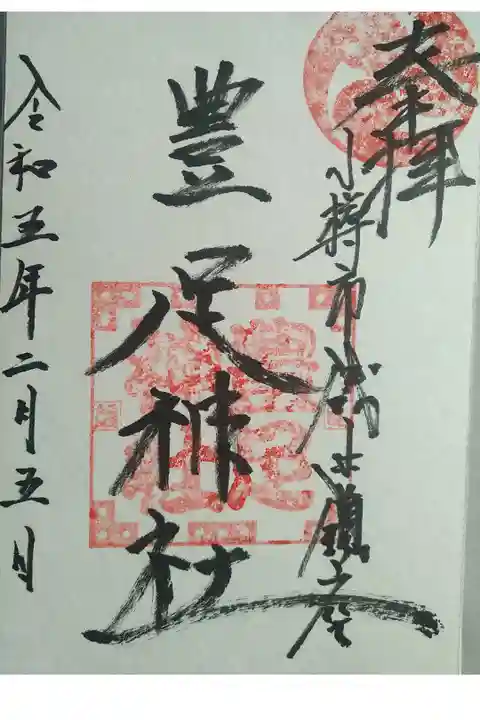 奉拝
小樽市浅草鎮座
豊足神社
令和五年二月五日